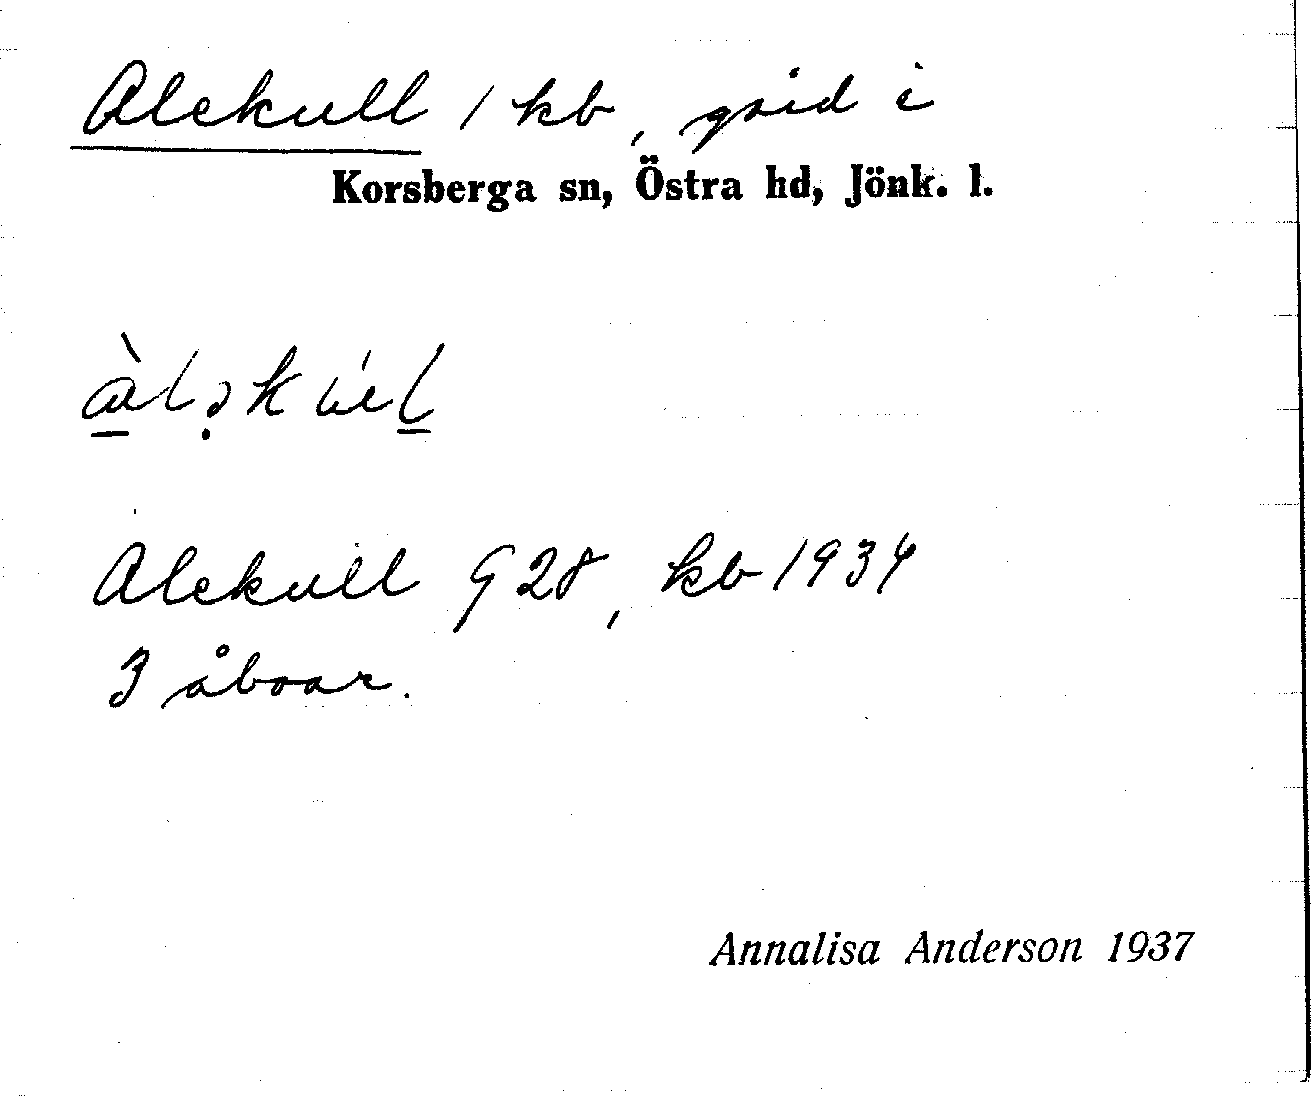 Alekull / kb, gård i
Korsberga sn, Östra hd, Jönk. l.
Alekull G 28, kb 1934
3 åboar.
Annalisa Anderson 1937